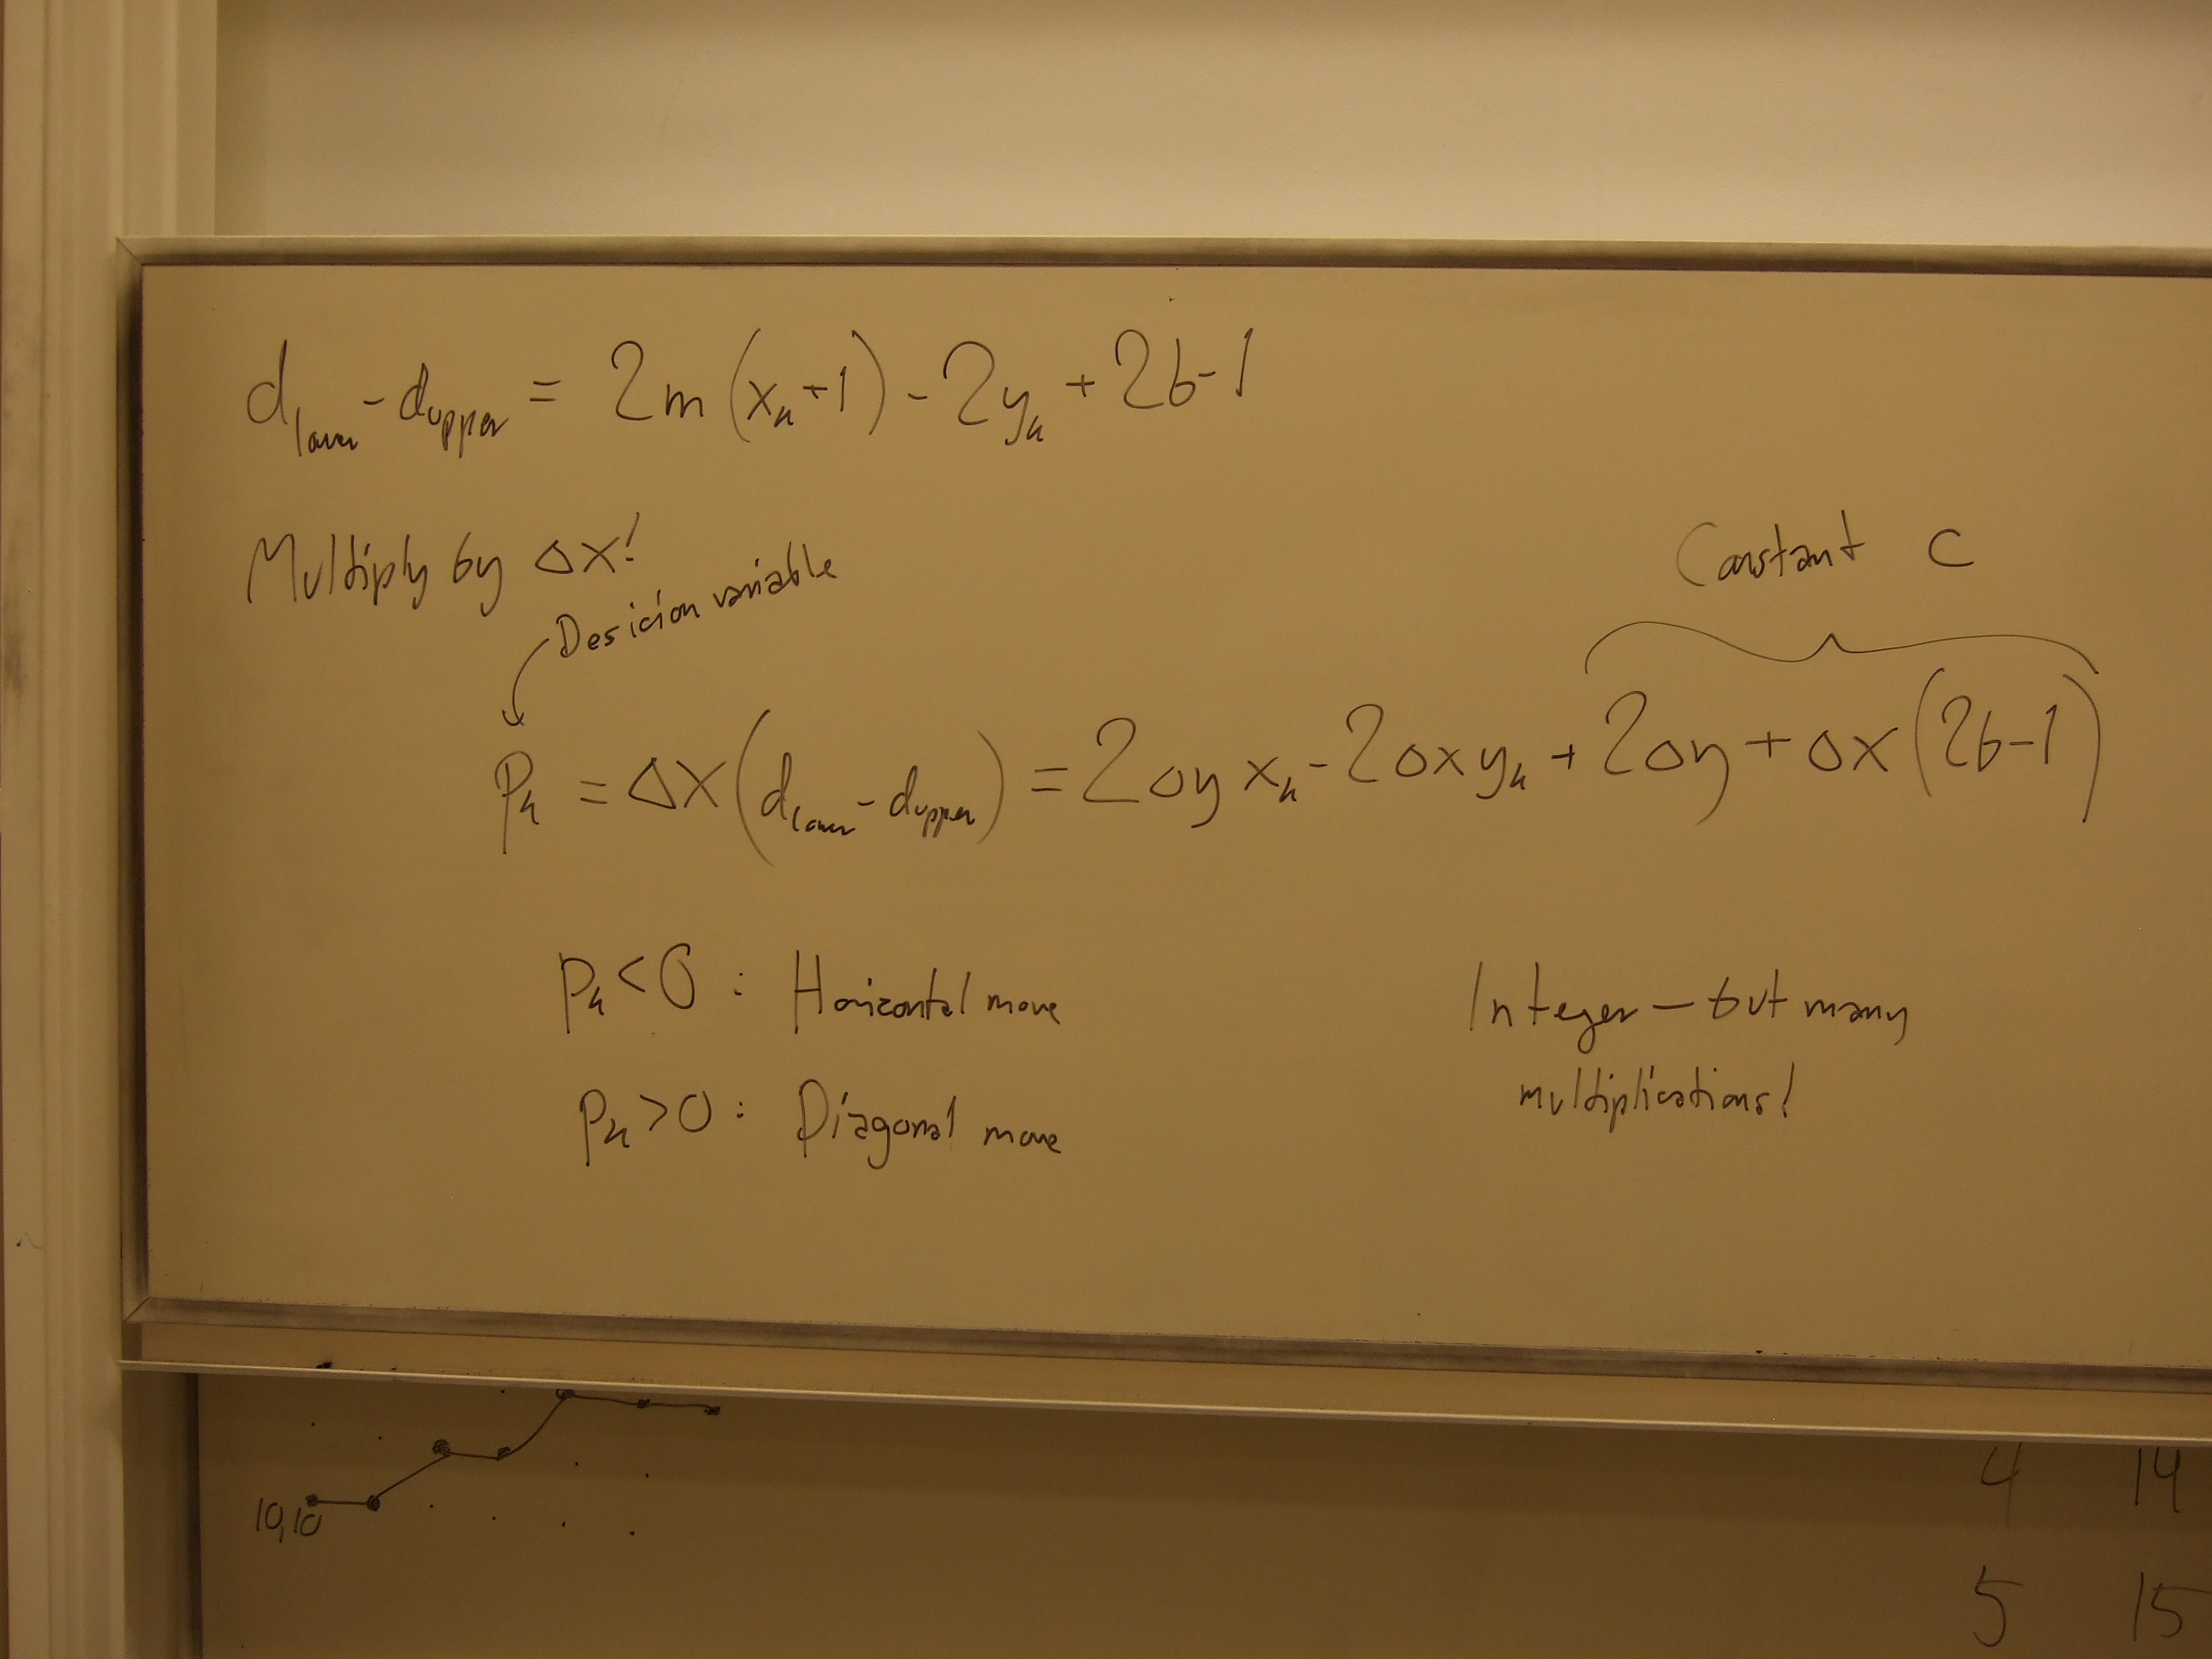 d_lower - d_upper = 2m(x_k+1) - 2y_k + 2b-1
Multiply by Δx!
Desicion variable
Constant C
P_k = Δx(d_lower - d_upper) = 2Δy x_k - 2Δx y_k + 2Δy + Δx(2b-1)
P_k < 0 : Horizontal move
P_k > 0 : Diagonal move
Integer — but many
multiplications!
10,10
4 14
5 15